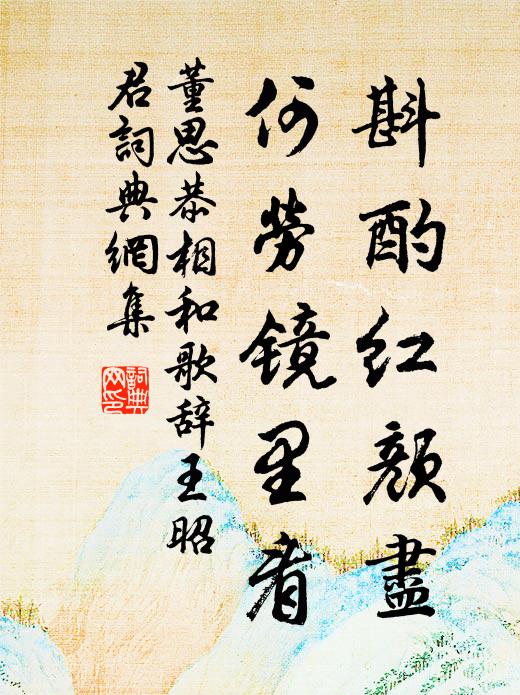 斟酌红颜盡
何勞镜里看
董思恭相和歌辞王昭
君詞典網集
詞典网印